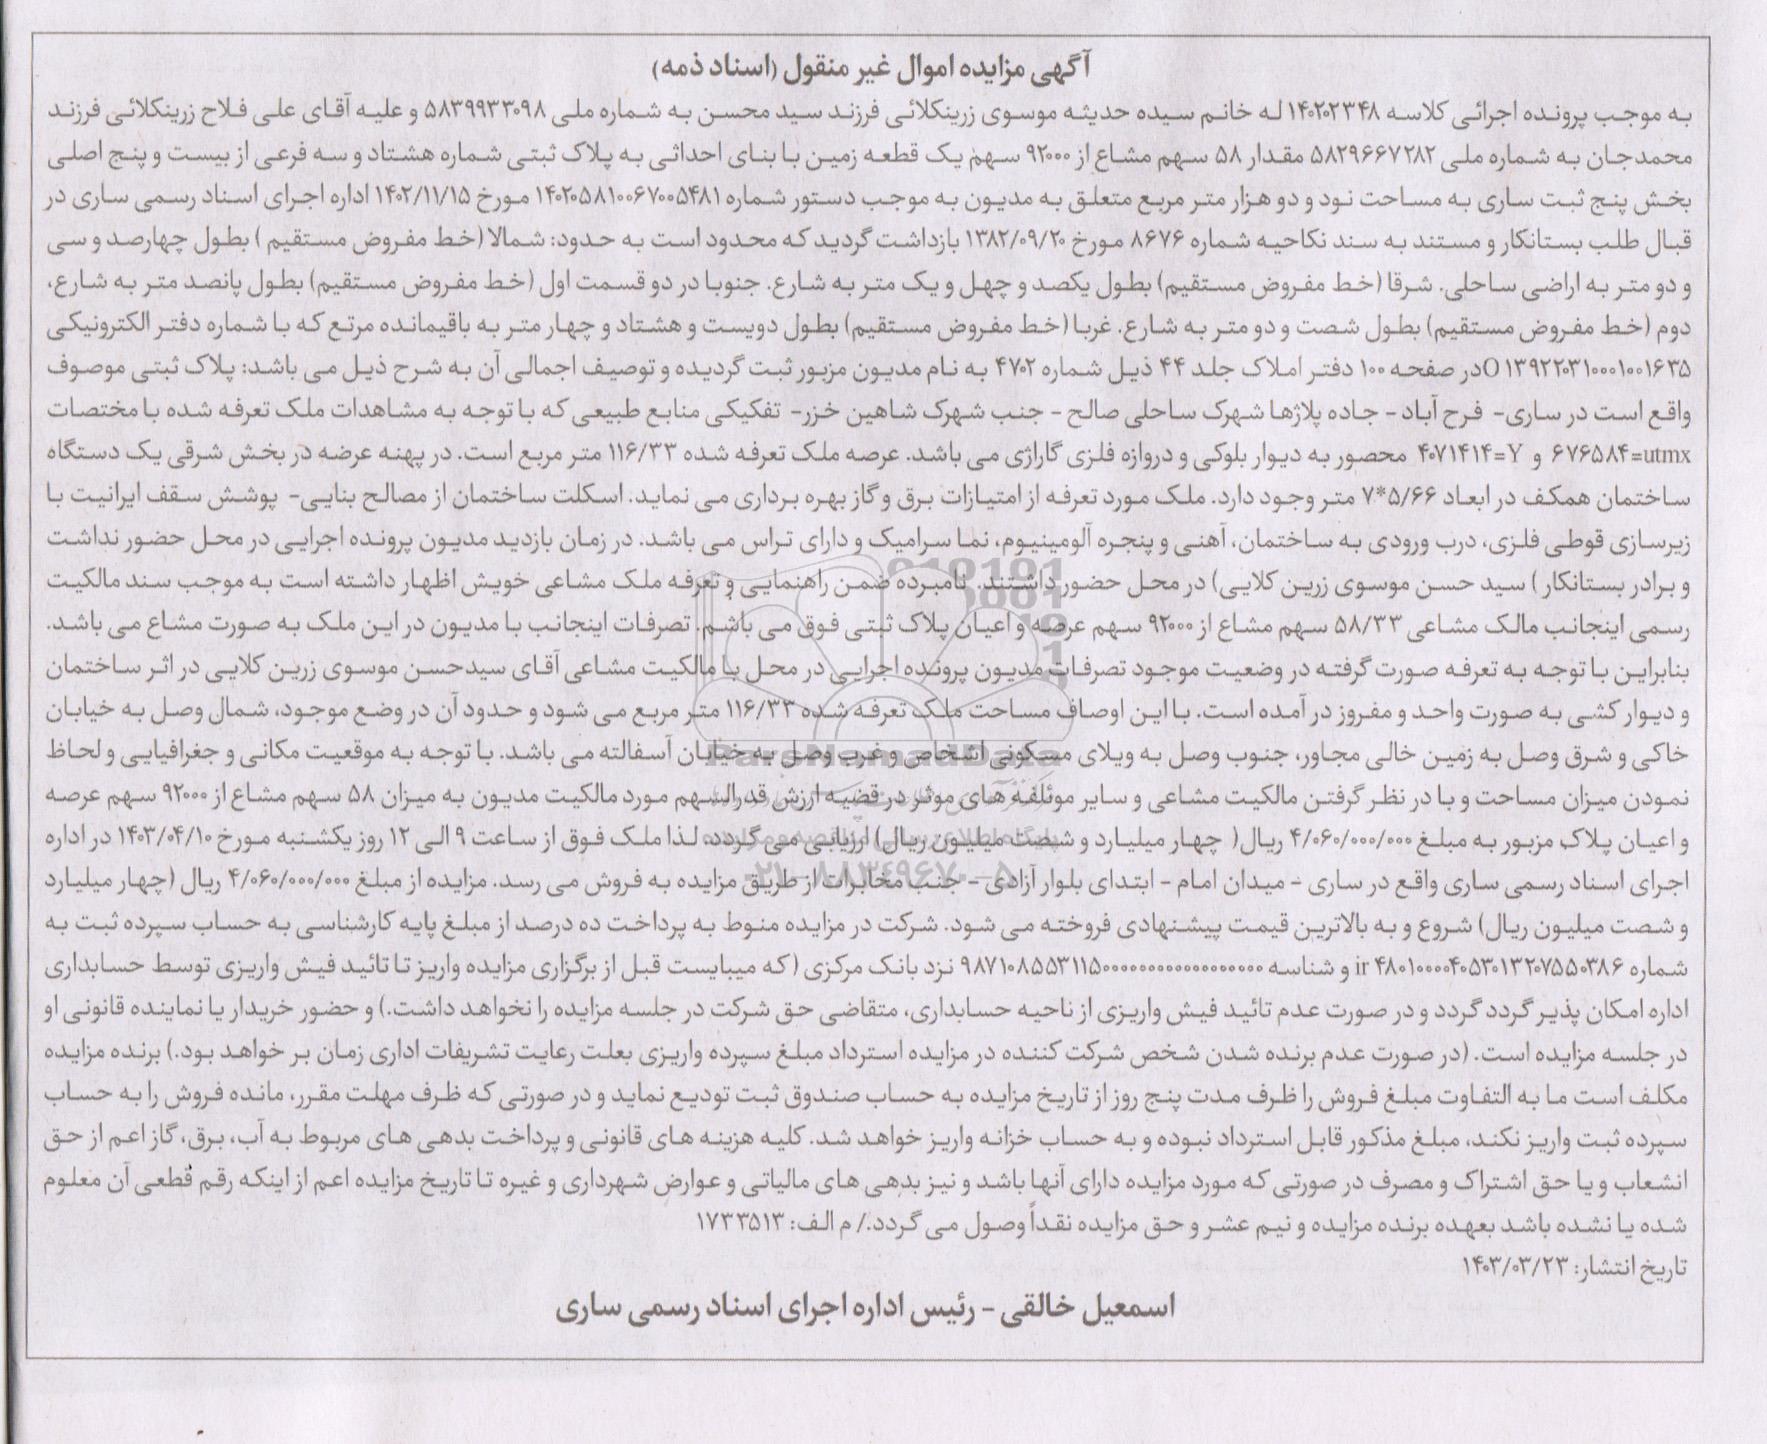 آگهی مزایده اموال غیر منقول (اسناد ذمه)
به موجب پرونده اجرائی کلاسه ۱۴۰۲۰۲۳۴۸ له خانم سیده حدیثه موسوی زرینکلائی فرزند سید محسن به شماره ملی ۵۸۳۹۹۳۳۰۹۸ و علیه آقای علی فلاح زرینکلائی فرزند
محمدجان به شماره ملی ۵۸۲۹۶۶۷۲۸۲ مقدار ۵۸ سهم مشاع از ۹۲۰۰۰ سهم یک قطعه زمین با بنای احداثی به پلاک ثبتی شماره هشتاد و سه فرعی از بیست و پنج اصلی
بخش پنج ثبت ساری به مساحت نود و دو هزار متر مربع متعلق به مدیون به موجب دستور شماره ۱۴۰۲۰۵۸۱۰۰۶۷۰۰۵۴۸۱ مورخ ۱۴۰۲/۱۱/۱۵ اداره اجرای اسناد رسمی ساری در
قبال طلب بستانکار و مستند به سند نکاحیه شماره ۸۶۷۶ مورخ ۱۳۸۲/۰۹/۲۰ بازداشت گردید که محدود است به حدود: شمالا (خط مفروض مستقیم ) بطول چهارصد و سی
و دو متر به اراضی ساحلی. شرقا (خط مفروض مستقیم) بطول یکصد و چهل و یک متر به شارع. جنوبا در دو قسمت اول (خط مفروض مستقیم) بطول پانصد متر به شارع،
دوم (خط مفروض مستقیم) بطول شصت و دو متر به شارع. غربا (خط مفروض مستقیم) بطول دویست و هشتاد و چهار متر به باقیمانده مرتع که با شماره دفتر الکترونیکی
۱۳۹۲۲۰۳۱۰۰۰۱۰۰۱۶۳۵ Oدر صفحه ۱۰۰ دفتر املاک جلد ۴۴ ذیل شماره ۴۷۰۲ به نام مدیون مزبور ثبت گردیده و توصیف اجمالی آن به شرح ذیل می باشد: پلاک ثبتی موصوف
واقع است در ساری- فرح آباد - جاده پلاژها شهرک ساحلی صالح - جنب شهرک شاهین خزر- تفکیکی منابع طبیعی که با توجه به مشاهدات ملک تعرفه شده با مختصات
utmx=۶۷۶۵۸۴ و Y=۴۰۷۱۴۱۴ محصور به دیوار بلوکی و دروازه فلزی گاراژی می باشد. عرصه ملک تعرفه شده ۱۱۶/۳۳ متر مربع است. در پهنه عرضه در بخش شرقی یک دستگاه
ساختمان همکف در ابعاد ۵/۶۶*۷ متر وجود دارد. ملک مورد تعرفه از امتیازات برق و گاز بهره برداری می نماید. اسکلت ساختمان از مصالح بنایی- پوشش سقف ایرانیت با
زیرسازی قوطی فلزی، درب ورودی به ساختمان، آهنی و پنجره آلومینیوم، نما سرامیک و دارای تراس می باشد. در زمان بازدید مدیون پرونده اجرایی در محل حضور نداشت
و برادر بستانکار ) سید حسن موسوی زرین کلایی) در محل حضور داشتند. نامبرده ضمن راهنمایی و تعرفه ملک مشاعی خویش اظهار داشته است به موجب سند مالکیت
رسمی اینجانب مالک مشاعی ۵۸/۳۳ سهم مشاع از ۹۲۰۰۰ سهم عرصه و اعیان پلاک ثبتی فوق می باشم. تصرفات اینجانب با مدیون در این ملک به صورت مشاع می باشد.
بنابراین با توجه به تعرفه صورت گرفته در وضعیت موجود تصرفات مدیون پرونده اجرایی در محل با مالکیت مشاعی آقای سیدحسن موسوی زرین کلایی در اثر ساختمان
و دیوار کشی به صورت واحد و مفروز در آمده است. با این اوصاف مساحت ملک تعرفه شده ۱۱۶/۳۳ متر مربع می شود و حدود آن در وضع موجود، شمال وصل به خیابان
خاکی و شرق وصل به زمین خالی مجاور، جنوب وصل به ویلای مسکونی اشخاص و غرب وصل به خیابان آسفالته می باشد. با توجه به موقعیت مکانی و جغرافیایی و لحاظ
نمودن میزان مساحت و با در نظر گرفتن مالکیت مشاعی و سایر موئلفه های موثر در قضیه ارزش قدرالسهم مورد مالکیت مدیون به میزان ۵۸ سهم مشاع از ۹۲۰۰۰ سهم عرصه
و اعیان پلاک مزبور به مبلغ ۴/۰۶۰/۰۰۰/۰۰۰ ریال( چهار میلیارد و شصت میلیون ریال) ارزیابی می گردد. لذا ملک فوق از ساعت ۹ الی ۱۲ روز یکشنبه مورخ ۱۴۰۳/۰۴/۱۰ در اداره
اجرای اسناد رسمی ساری واقع در ساری - میدان امام - ابتدای بلوار آزادی - جنب مخابرات از طریق مزایده به فروش می رسد. مزایده از مبلغ ۴/۰۶۰/۰۰۰/۰۰۰ ریال (چهار میلیارد
و شصت میلیون ریال) شروع و به بالاترین قیمت پیشنهادی فروخته می شود. شرکت در مزایده منوط به پرداخت ده درصد از مبلغ پایه کارشناسی به حساب سپرده ثبت به
شماره ir ۴۸۰۱۰۰۰۰۴۰۵۳۰۱۳۲۰۷۵۵۰۳۸۶ و شناسه نزد بانک مرکزی (که میبایست قبل از برگزاری مزایده واریز تا تائید فیش واریزی توسط حسابداری
اداره امکان پذیر گردد گردد و در صورت عدم تائید فیش واریزی از ناحیه حسابداری، متقاضی حق شرکت در جلسه مزایده را نخواهد داشت.) و حضور خریدار یا نماینده قانونی او
در جلسه مزایده است. (در صورت عدم برنده شدن شخص شرکت کننده در مزایده استرداد مبلغ سپرده واریزی بعلت رعایت تشریفات اداری زمان بر خواهد بود.) برنده مزایده
مکلف است ما به التفاوت مبلغ فروش را ظرف مدت پنج روز از تاریخ مزایده به حساب صندوق ثبت تودیع نماید و در صورتی که ظرف مهلت مقرر، مانده فروش را به حساب
سپرده ثبت واریز نکند، مبلغ مذکور قابل استرداد نبوده و به حساب خزانه واریز خواهد شد. کلیه هزینه های قانونی و پرداخت بدهی های مربوط به آب، برق، گاز اعم از حق
انشعاب و یا حق اشتراک و مصرف در صورتی که مورد مزایده دارای آنها باشد و نیز بدهی های مالیاتی و عوارض شهرداری و غیره تا تاریخ مزایده اعم از اینکه رقم قطعی آن معلوم
شده یا نشده باشد بعهده برنده مزایده و نیم عشر و حق مزایده نقداً وصول می گردد./ م الف: ۱۷۳۳۵۱۳
تاریخ انتشار: ۱۴۰۳/۰۳/۲۳
اسمعیل خالقی - رئیس اداره اجرای اسناد رسمی ساری
ParsNamadData